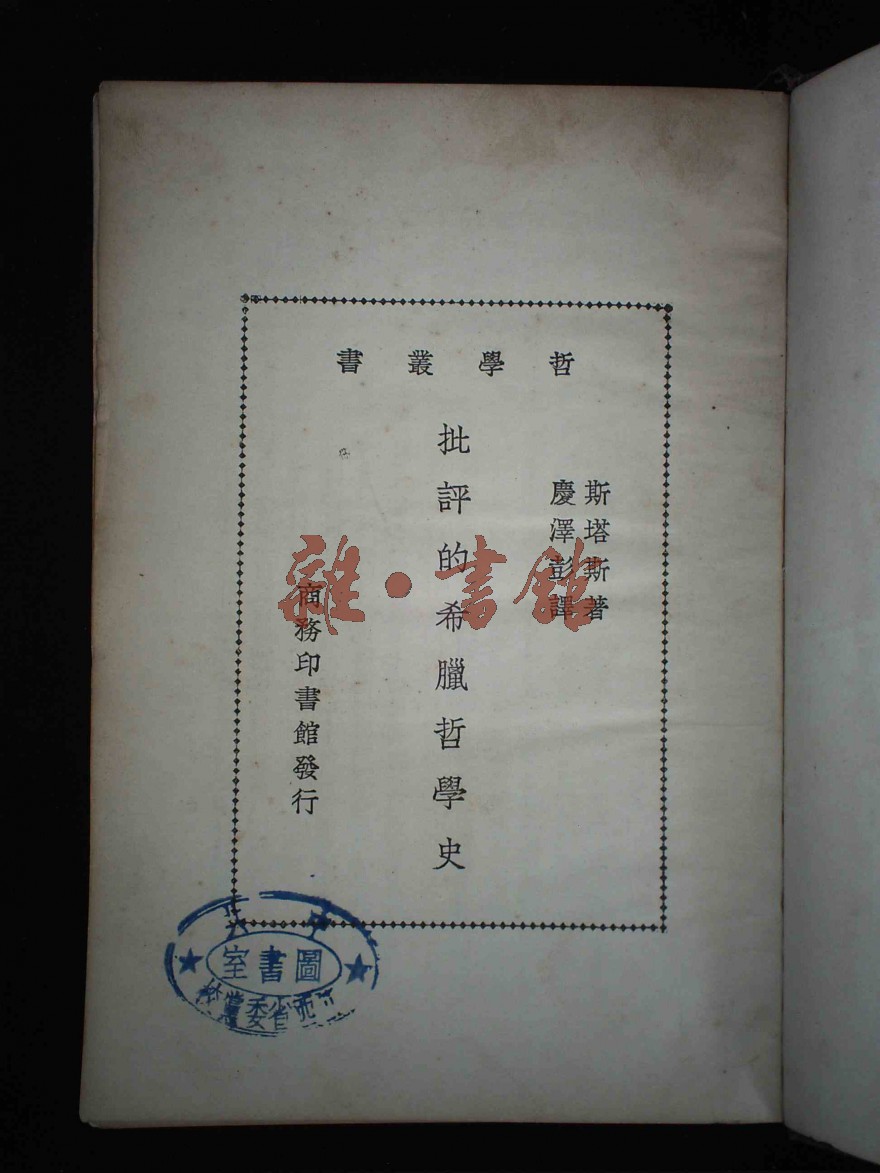 哲學叢書
斯塔斯著
慶澤彭譯
批評的希臘哲學史
商務印書館發行
雜·書館
圖書室